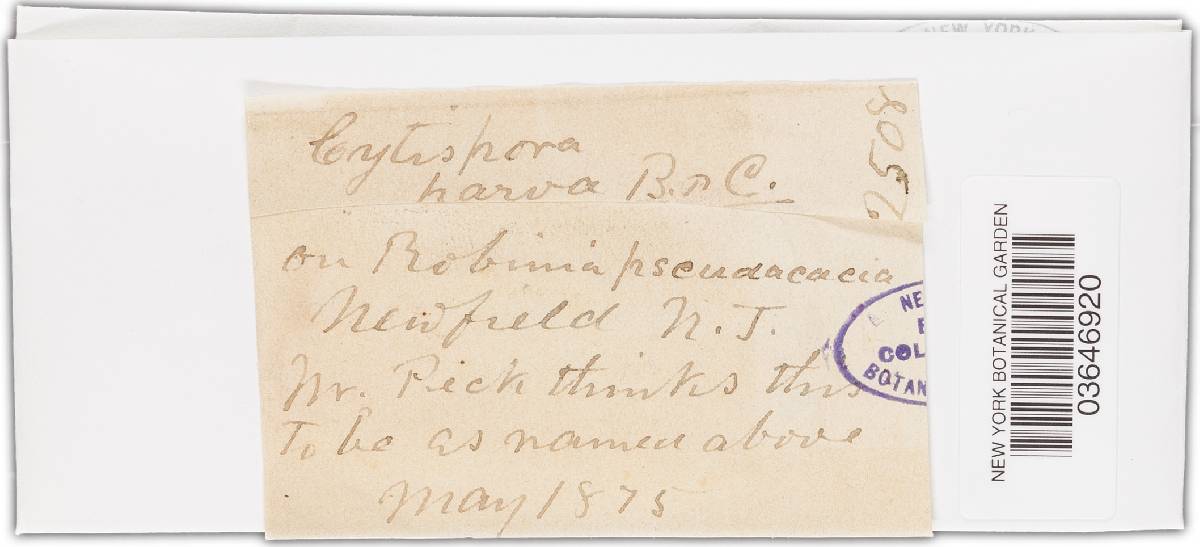 NEW YORK
Cytispora
parva B. & C.
2508
on Robinia pseudacacia
Newfield N. J.
Mr. Peck thinks this
to be as named above
May 1875
NE
COL
BOTAN
NEW YORK BOTANICAL GARDEN
03646920